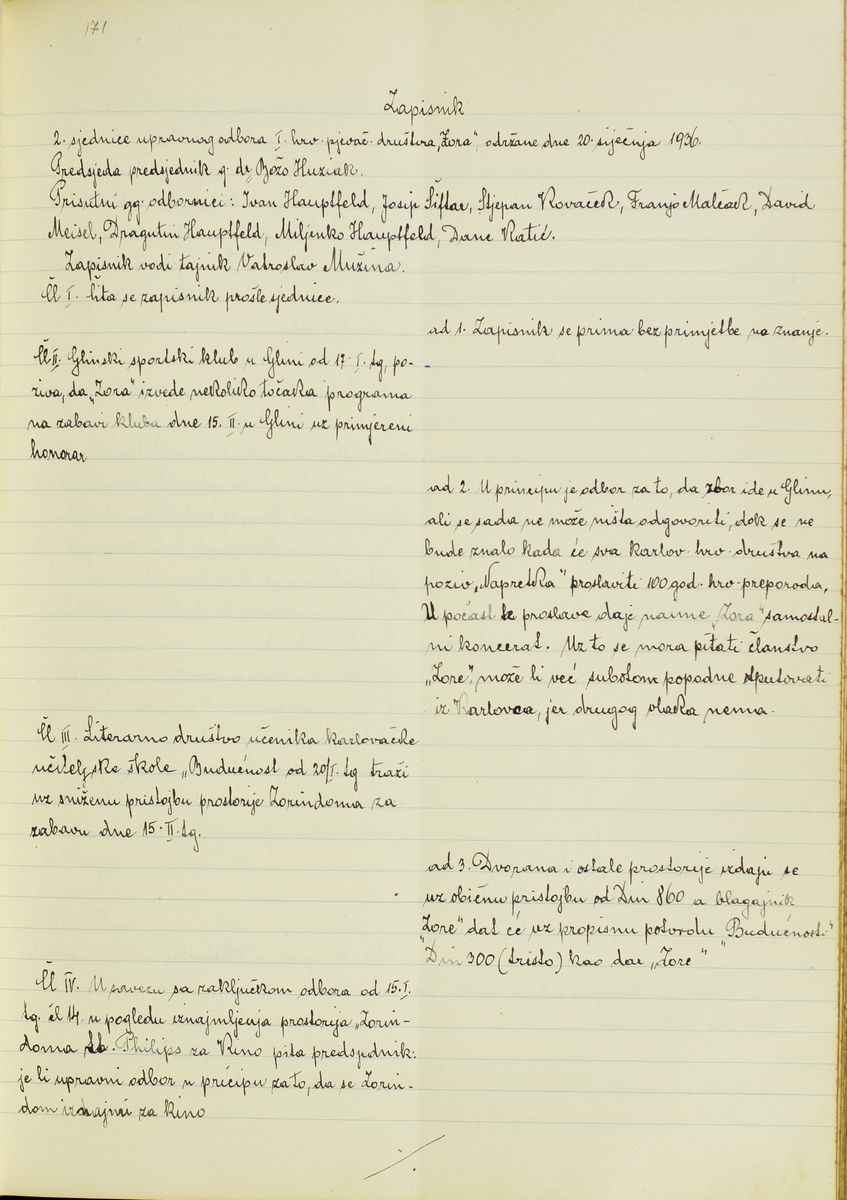 171
Zapisnik
2. sjednice upravnog odbora I. hrv. pjevač. društva „Zora“, održane dne 20. siječnja 1936.
Predsjeda predsjednik g. dr Božo Huziak.
Prisutni gg. odbornici: Ivan Hauptfeld, Josip Šiftar, Stjepan Kovaček, Franjo Malčak, David
Meisel, Dragutin Hauptfeld, Miljenko Hauptfeld, Dane Katić.
Zapisnik vodi tajnik Vatroslav Mužina.
Čl I. Čita se zapisnik prošle sjednice.
ad 1. Zapisnik se prima bez primjetbe na znanje.
Čl. II. Glinski sportski klub u Glini od 17. I. tg, po-
ziva, da „Zora“ izvede nekoliko točaka programa
na zabavi kluba dne 15. II. u Glini uz primjereni
honorar
ad 2. U principu je odbor za to, da zbor ide u Glinu,
ali se sada ne može ništa odgovoriti, dok se ne
bude znalo kada će sva karlov. hrv. društva na
poziv „Napretka“ proslaviti 100 god. hrv. preporoda,
U počast te proslave daje naime „Zora“ samostal-
ni koncerat. Uz to se mora pitati članstvo
„Zore“, može li već subotom popodne otputovati
iz Karlovca, jer drugog vlaka nema.
Čl III. Literarno društvo učenika karlovačke
učiteljske škole „Budućnost od 20/I. tg traži
uz sniženu pristojbu prostorije Zorindoma za
zabavu dne 15. II. tg.
ad 3. Dvorana i ostale prostorije izdaju se
uz običnu pristojbu od Din 860 a blagajnik
„Zore“ dat će uz propisnu potvrdu „Budućnosti“
Din 300 (tristo) kao dar „Zore“
Čl IV. U savezu sa zaključkom odbora od 15. I.
tg. čl 14. u pogledu iznajmljenja prostorija „Zorin-
doma Philips za Kino pita predsjednik:
je li upravni odbor u pricipu za to, da se Zorin-
dom iznajmi za kino
./.